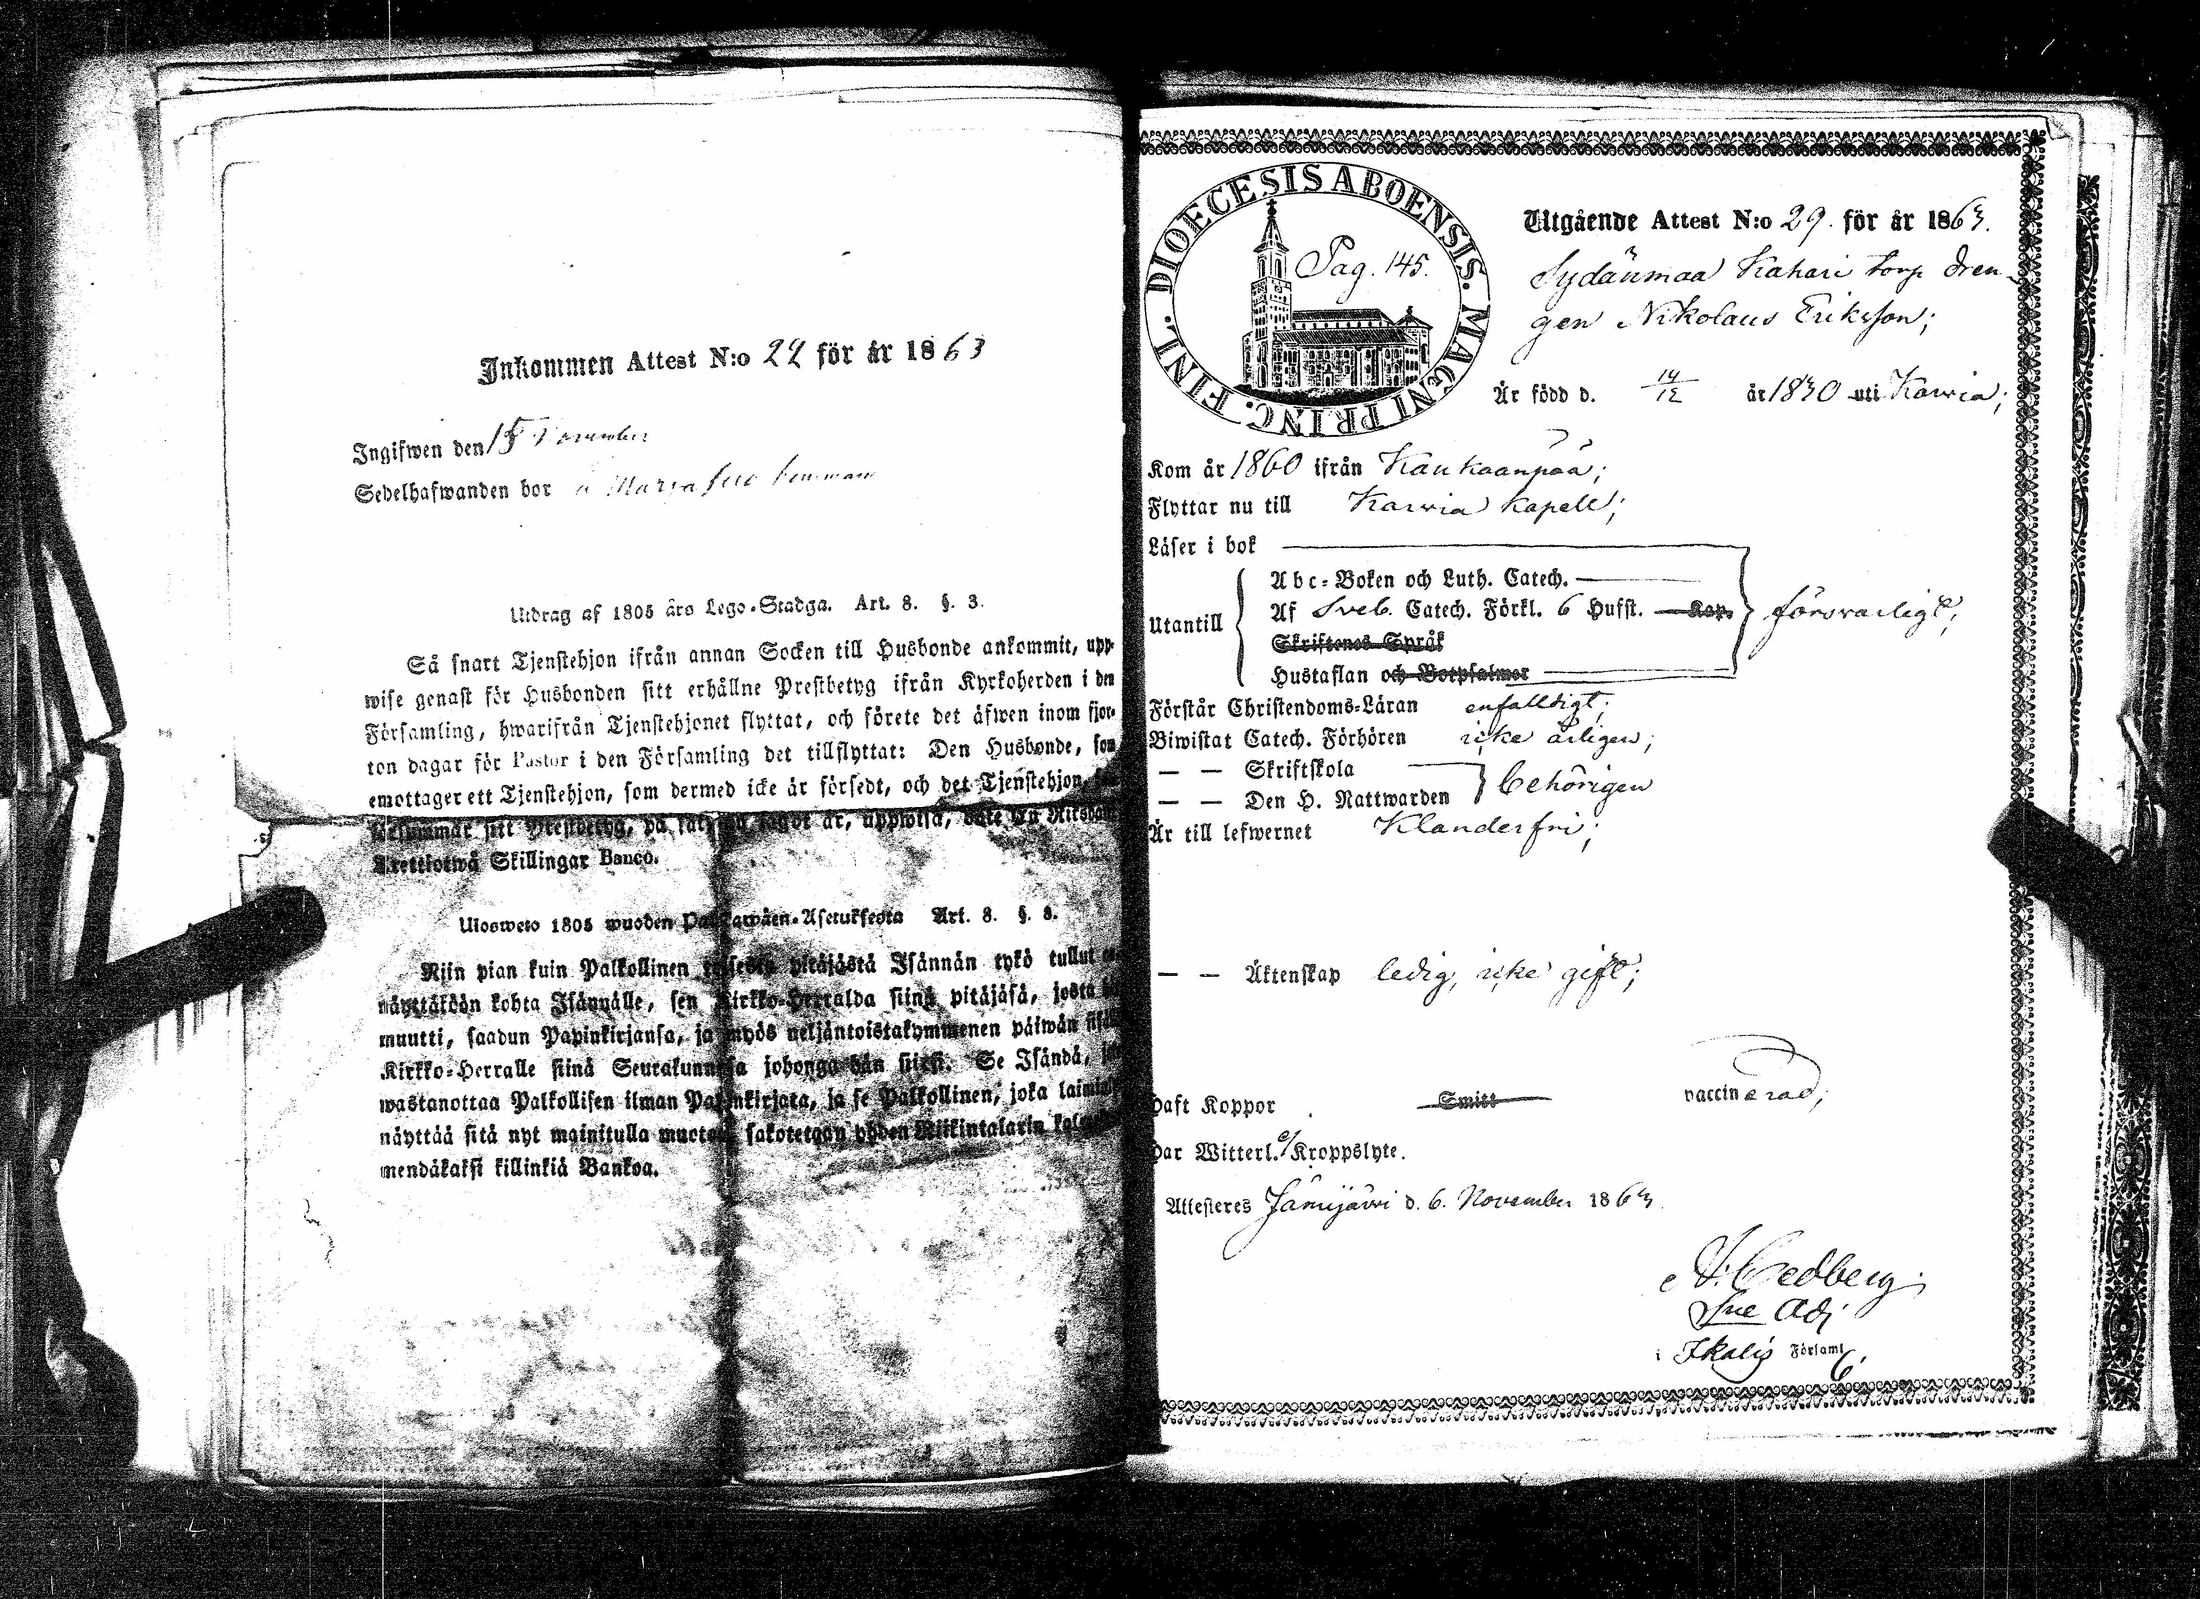 Inkommen Attest N:o 22 för år 1863
Ingifwen den 15 November
Sedelhafwanden bor
Utdrag af 1805 års Lego-Stadga. Art. 8. §. 3.
Så snart Tjenstehjon ifrån annan Socken till Husbonde ankommit, upp-
wise genast för Husbonden sitt erhållne Prestbetyg ifrån Kyrkoherden i den
Församling, hwarifrån Tjenstehjonet flyttat, och förete det äfwen inom fjor-
ton dagar för Pastor i den Församling det tillflyttat: Den Husbonde, som
emottager ett Tjenstehjon, som dermed icke är försedt, och det Tjenstehjon,
försummar sitt Prestbetyg, på sätt nu sagdt är, uppwisa, böte En Riksdal.
Frettiotwå Skillingar Banco.
Ulosweto 1805 wuoden Palkkawäen-Asetuksesta Art. 8. §. 3.
Niin pian kuin Palkollinen toisesta pitäjästä Isännän tykö tullut
näyttäköön kohta Isännälle, sen Kirkko-Herralda siinä pitäjäsä, josta
muutti, saadun Papinkirjansa, ja myös neljäntoistakymmenen päiwän sisä
Kirkko-Herralle siinä Seurakunnasa johonga hän siirsi. Se Isändä,
wastanottaa Palkollisen ilman Papinkirjata, ja se Palkollinen, joka laimin
näyttää sitä nyt mainitulla muotoa, sakotetaan yhden Riikintalarin
mendäkaksi killinkiä Bankoa.
DIOECESIS ABOENSIS. MAGNI PRINC. FINL.
Pag. 145.
Utgående Attest N:o 29. för år 1863.
Sydänmaa Kahari torp dren-
gen Nikolaus Eriksson;
Är född d. 14/12 år 1830 uti Karvia;
Kom år 1860 ifrån Kankaanpää;
Flyttar nu till Karvia Kapell;
Läser i bok
Utantill
Abc-Boken och Luth. Catech.
Af Sveb. Catech. Förkl. 6 Hufst. Kap.
Skriftenes Språk
Hustaflan och Botpsalmer
försvarligt;
Förstår Christendoms-Läran enfalldigt;
Biwistat Catech. Förhören icke årligen;
— — Skriftskola
— — Den H. Nattwarden
behörigen
Är till lefwernet Klanderfri;
— — Äktenskap ledig, icke gift;
Haft Koppor Smitt vaccinerad;
Har Witterl. ej Kroppslyte.
Attesteres Jämijärvi d. 6. November 1863.
Cedberg
Adj
i Ikalis Församl.